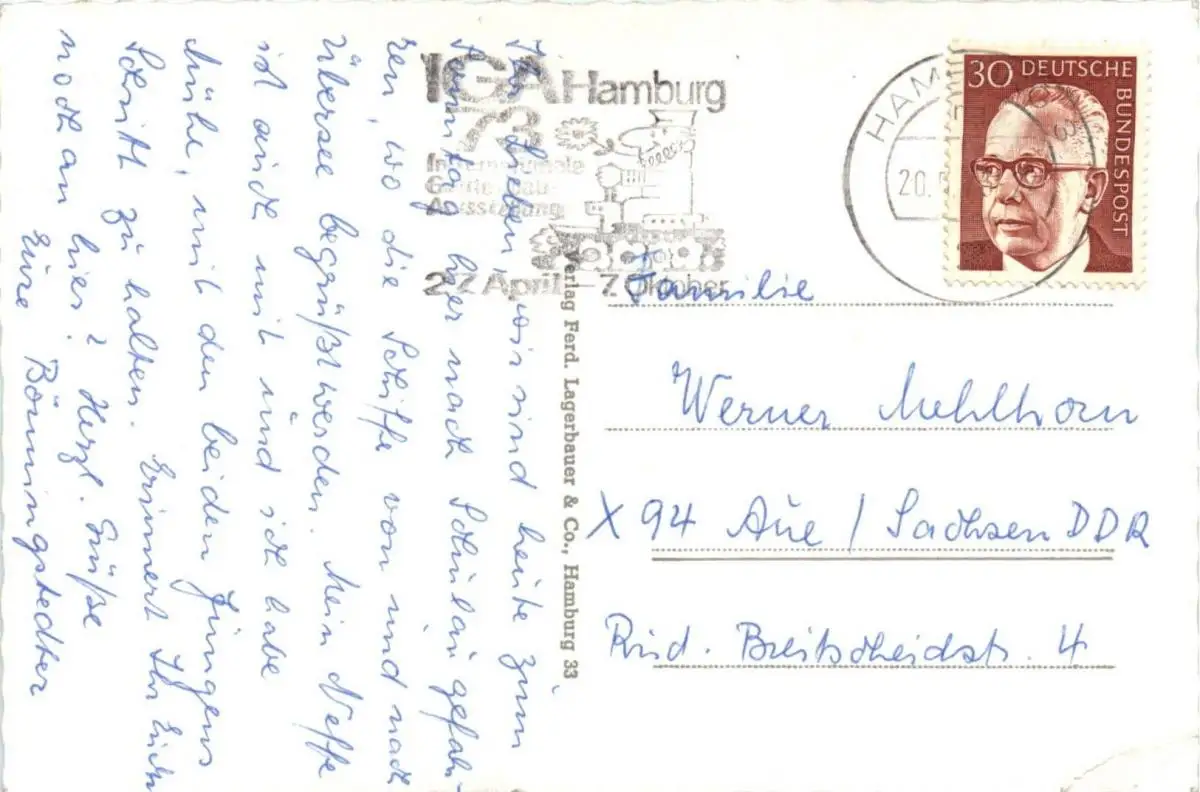 Ihr Lieben, wir sind heute zum
Sonntag hier nach Schulau gefah-
ren, wo die Schiffe von und nach
Übersee begrüßt werden. Mein Neffe
ist auch mit und ich habe
Mühe, mit den beiden Jungens
Schritt zu halten. Erinnert Ihr Euch
noch an hier? Herzl. Grüße
Eure Bönningstedter
IGA Hamburg
73
Internationale
Gartenbau
Ausstellung
27. April – 7. Oktober
HAM
20.
30 DEUTSCHE
BUNDESPOST
Verlag Ferd. Lagerbauer & Co., Hamburg 33
Familie
Werner Mehlhorn
X 94 Aue / Sachsen DDR
Rud. Breitscheidstr. 4